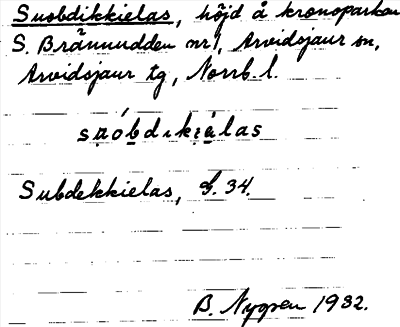 Suobdikkielas, höjd å kronoparken
S. Brännudden nr 1, Arvidsjaur sn,
Arvidsjaur tg, Norrb. l.
sa̤óbdıkié̤̣las
Subdekkielas, G. 34.
B. Nygren 1932.